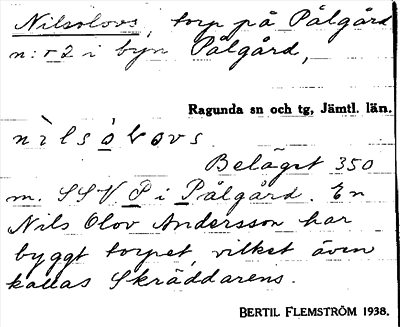 Nilsolovs, torp på Pålgård
n:r 2 i byn Pålgård,
Ragunda sn och tg, Jämtl. län.
nìlsòlovs.
Beläget 350
m. SSV P i Pålgård. En
Nils Olov Andersson har
byggt torpet, vilket även
kallas Skräddarens.
BERTIL FLEMSTRÖM 1938.